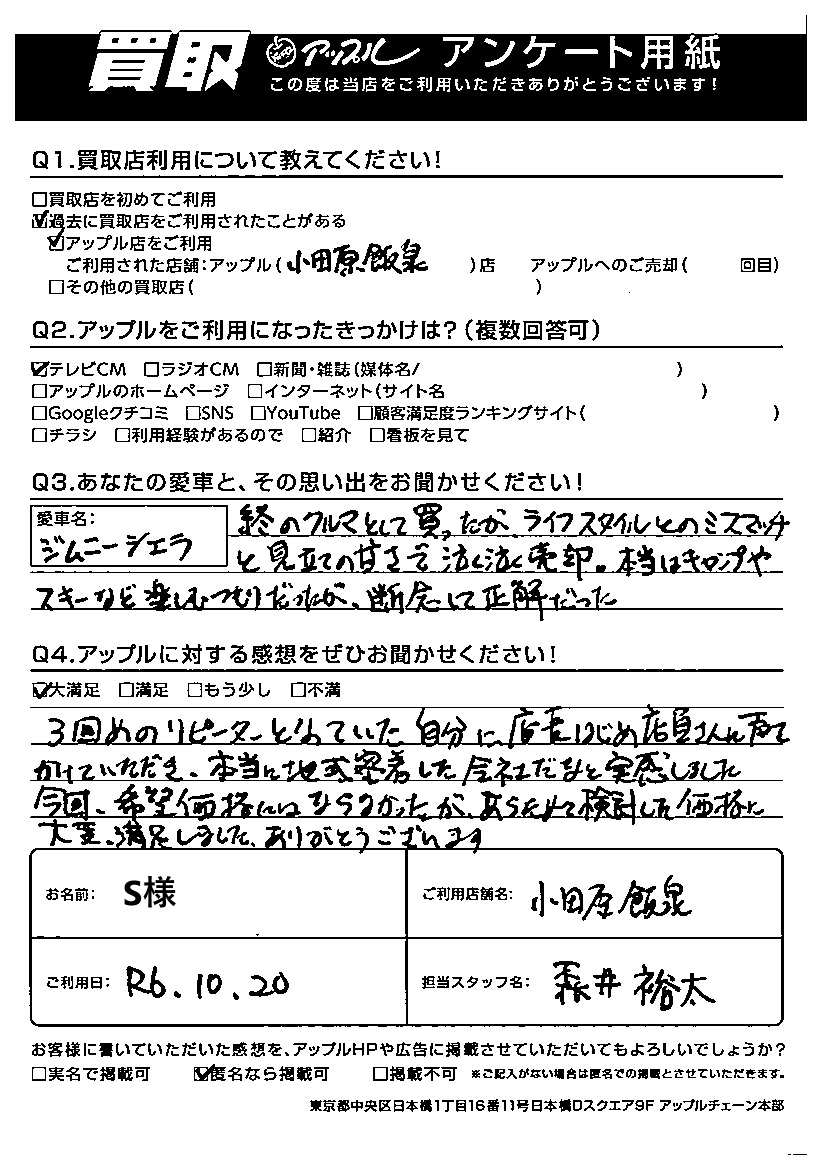 買取 アップル アンケート用紙
この度は当店をご利用いただきありがとうございます!
Q1.買取店利用について教えてください!
□買取店を初めてご利用
☑過去に買取店をご利用されたことがある
☑アップル店をご利用
ご利用された店舗:アップル(小田原飯泉)店 アップルへのご売却( 回目)
□その他の買取店( )
Q2.アップルをご利用になったきっかけは?(複数回答可)
☑テレビCM □ラジオCM □新聞・雑誌(媒体名/ )
□アップルのホームページ □インターネット(サイト名 )
□Googleクチコミ □SNS □YouTube □顧客満足度ランキングサイト( )
□チラシ □利用経験があるので □紹介 □看板を見て
Q3.あなたの愛車と、その思い出をお聞かせください!
愛車名:
ジムニーシエラ
終のクルマとして買ったが、ライフスタイルとのミスマッチ
と見立ての甘さで泣く泣く売却。本当はキャンプや
スキーなど楽しむつもりだったが、断念して正解だった
Q4.アップルに対する感想をぜひお聞かせください!
☑大満足 □満足 □もう少し □不満
3回めのリピーターとなっていた自分に、店長はじめ店員さんに声て
かけていただき、本当に地域密着した会社だなと実感しました
今回、希望価格にはならなかったが、あらためて検討した価格に
大変、満足しました、ありがとうございます
お名前: S様
ご利用店舗名: 小田原飯泉
ご利用日: R6.10.20
担当スタッフ名: 森井 裕太
お客様に書いていただいた感想を、アップルHPや広告に掲載させていただいてもよろしいでしょうか?
□実名で掲載可 ☑匿名なら掲載可 □掲載不可 ※ご記入がない場合は匿名での掲載とさせていただきます。
東京都中央区日本橋1丁目16番11号日本橋Dスクエア9F アップルチェーン本部